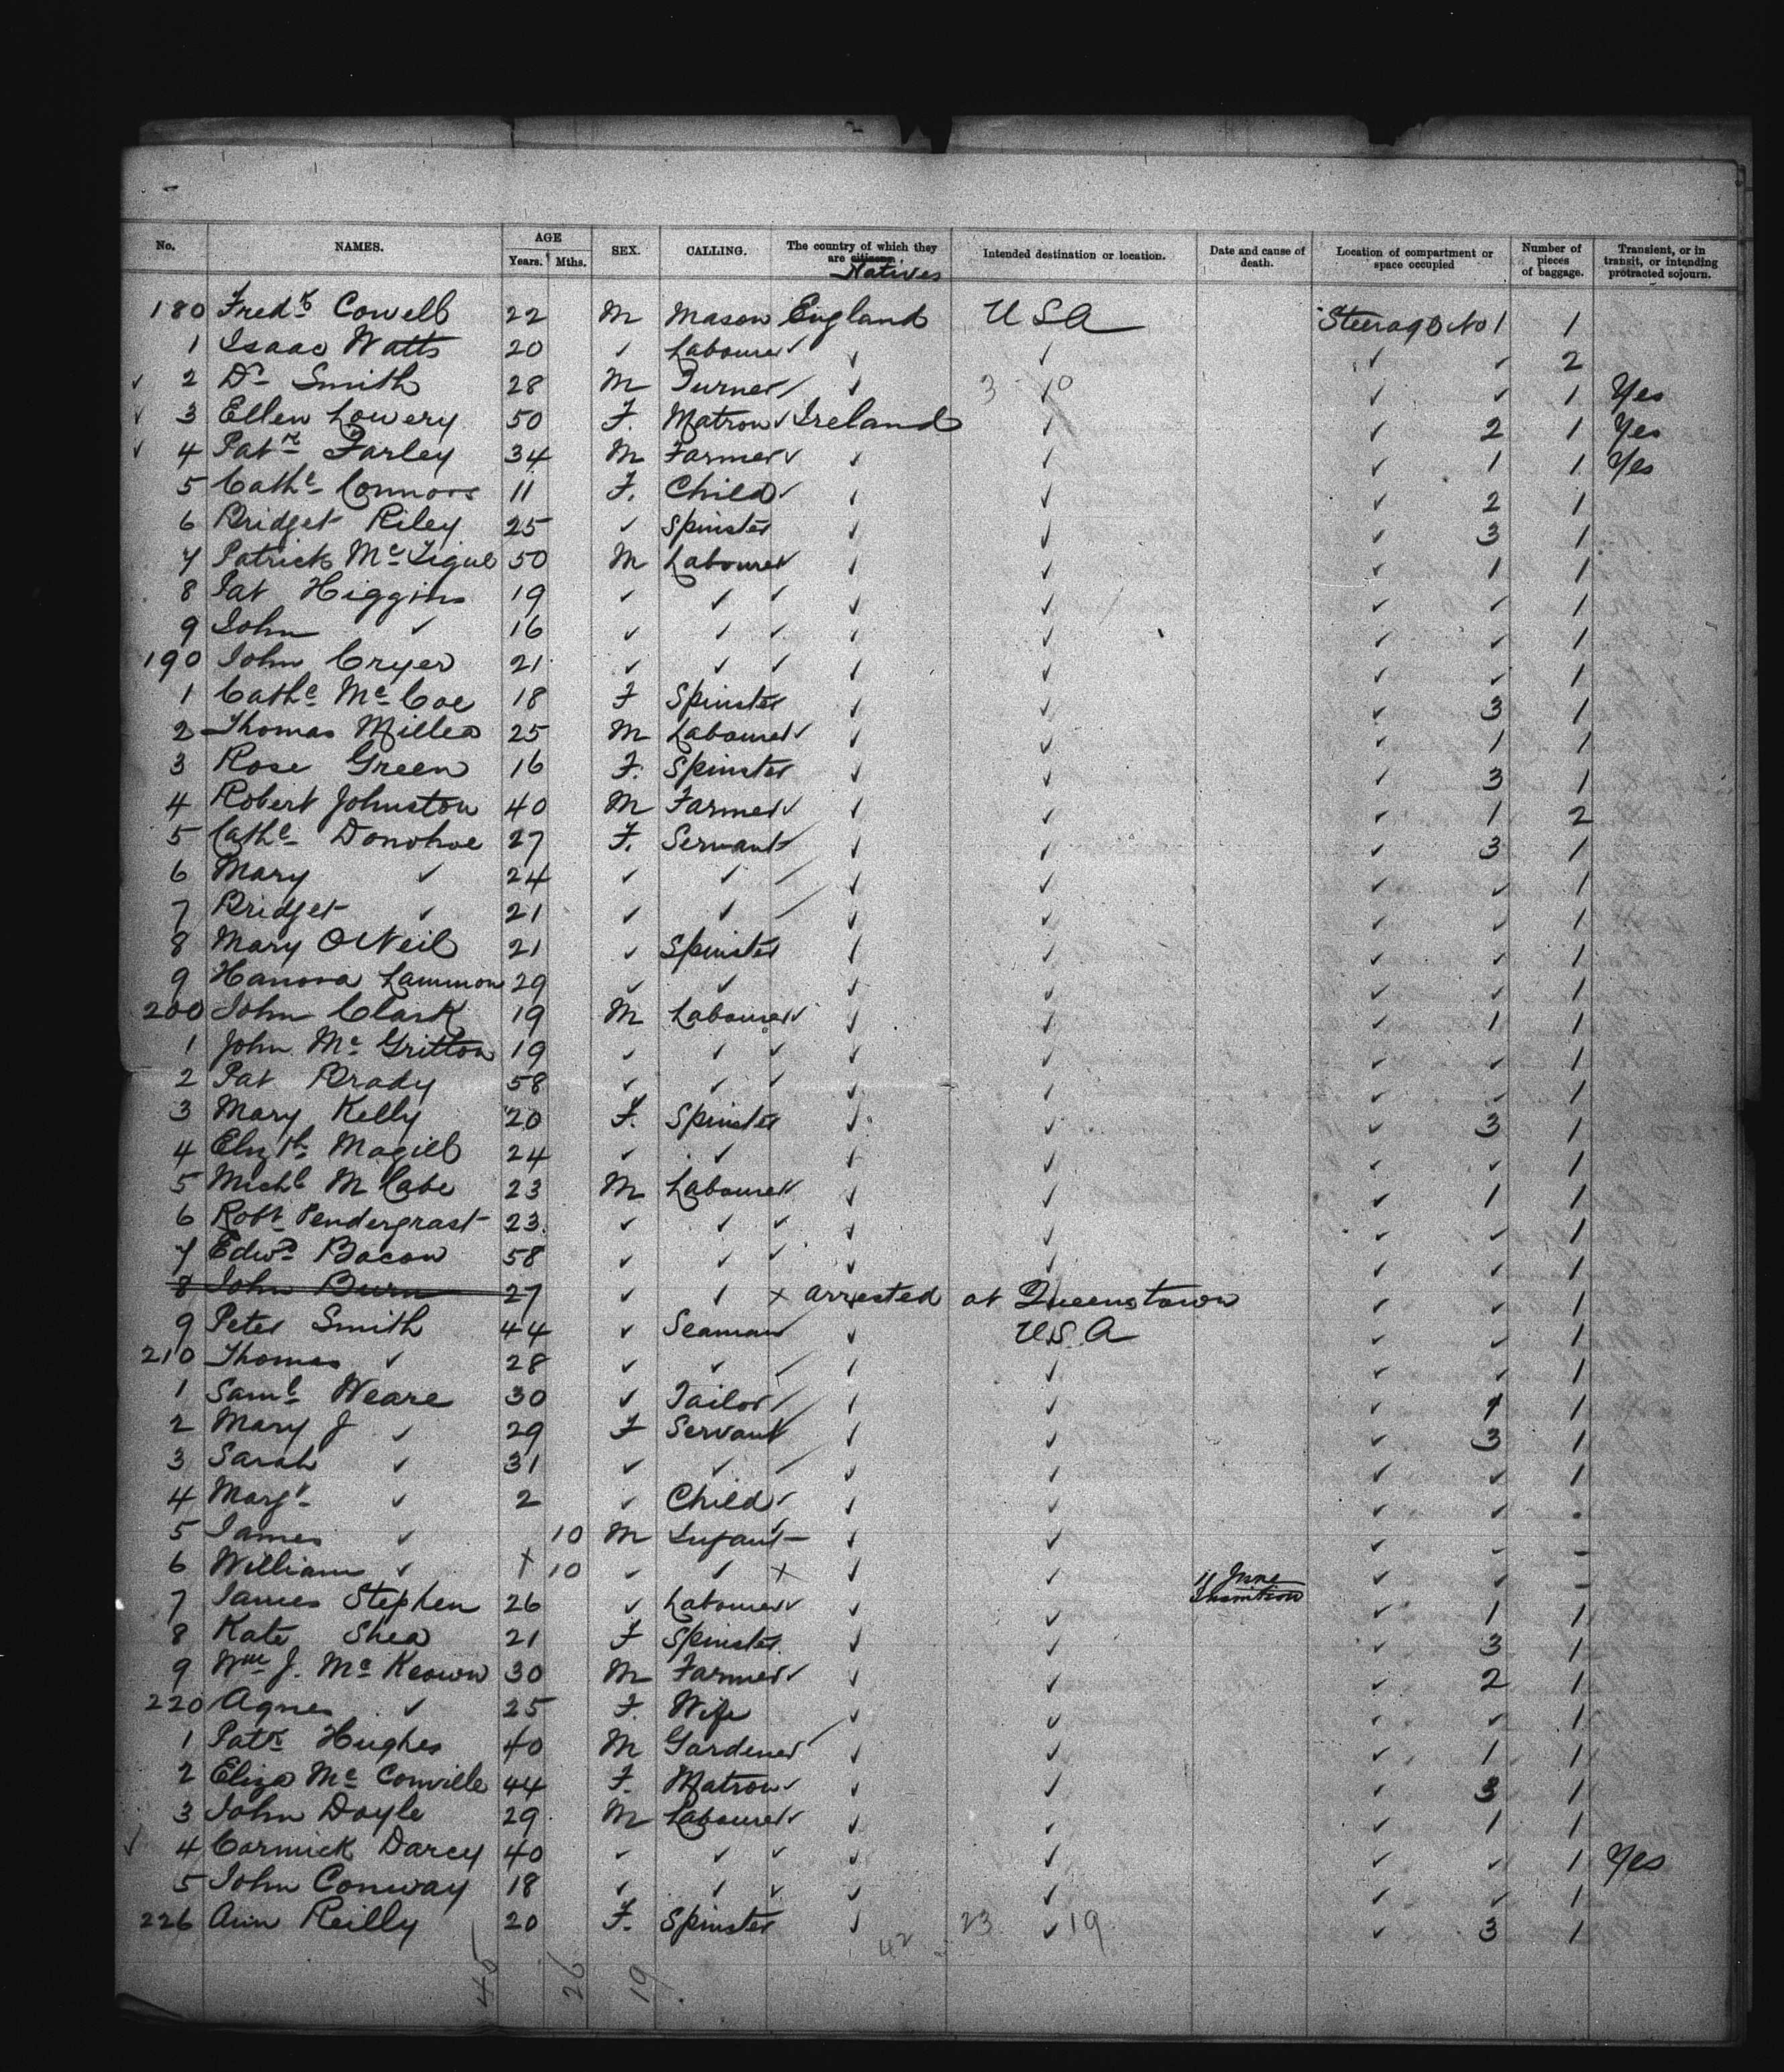 No. NAMES. AGE Years. Mths. SEX. CALLING. The country of which they are citizens. Natives Intended destination or location. Date and cause of death. Location of compartment or space occupied Number of pieces of baggage. Transient, or in transit, or intending protracted sojourn.
180 Fredk Cowell 22 M Mason England USA Steerage No 1 1
1 Isaac Watts 20 ✓ Labourer ✓ ✓ ✓ ✓ ✓ 2
✓ 2 Dd Smith 28 M Turner ✓ ✓ 3 ✓ 0 ✓ ✓ 1 Yes
✓ 3 Ellen Lowery 50 F. Matron ✓ Ireland ✓ ✓ 2 1 Yes
✓ 4 Patk Farley 34 M Farmer ✓ ✓ ✓ ✓ 1 1 Yes
5 Cathe Connors 11 F. Child ✓ ✓ ✓ ✓ 2 1
6 Bridget Riley 25 ✓ Spinster ✓ ✓ ✓ 3 1
7 Patrick Mc Tigue 50 M Labourer ✓ ✓ ✓ 1 1
8 Pat Higgins 19 ✓ ✓ ✓ ✓ ✓ ✓ ✓ 1
9 John ✓ 16 ✓ ✓ ✓ ✓ ✓ ✓ ✓ 1
190 John Cryer 21 ✓ ✓ ✓ ✓ ✓ ✓ ✓ 1
1 Cathe Mc Coe 18 F Spinster ✓ ✓ ✓ 3 1
2 Thomas Millea 25 M Labourer ✓ ✓ ✓ ✓ 1 1
3 Rose Green 16 F. Spinster ✓ ✓ ✓ 3 1
4 Robert Johnston 40 M Farmer ✓ ✓ ✓ ✓ 1 2
5 Cathe Donohoe 27 F. Servant ✓ ✓ ✓ 3 1
6 Mary ✓ 24 ✓ ✓ ✓ ✓ ✓ ✓ 1
7 Bridget ✓ 21 ✓ ✓ ✓ ✓ ✓ ✓ 1
8 Mary O'Neil 21 ✓ Spinster ✓ ✓ ✓ ✓ 1
9 Hanora Lammon 29 ✓ ✓ ✓ ✓ ✓ ✓ 1
200 John Clark 19 M Labourer ✓ ✓ ✓ ✓ 1 1
1 John Mc Gritton 19 ✓ ✓ ✓ ✓ ✓ ✓ ✓ 1
2 Pat Brady 58 ✓ ✓ ✓ ✓ ✓ ✓ ✓ 1
3 Mary Kelly 20 F. Spinster ✓ ✓ ✓ 3 1
4 Elizth Magill 24 ✓ ✓ ✓ ✓ ✓ ✓ 1
5 Michl McCabe 23 M Labourer ✓ ✓ ✓ 1 1
6 Robt Pendergrast 23 ✓ ✓ ✓ ✓ ✓ ✓ ✓ 1
7 Edwd Bacon 58 ✓ ✓ ✓ ✓ ✓ ✓ ✓ 1
8 John Burn 27 ✓ ✓ × arrested at Queenstown ✓ ✓ 1
9 Peter Smith 44 ✓ Seaman ✓ USA ✓ ✓ 1
210 Thomas ✓ 28 ✓ ✓ ✓ ✓ ✓ ✓ 1
1 Saml Weare 30 ✓ Tailor ✓ ✓ ✓ 1 1
2 Mary J ✓ 29 F Servant ✓ ✓ ✓ 3 1
3 Sarah ✓ 31 ✓ ✓ ✓ ✓ ✓ ✓ 1
4 Margt ✓ 2 ✓ Child ✓ ✓ ✓ ✓ ✓ -
5 James ✓ 10 M Infant ✓ ✓ ✓ - -
6 William ✓ × 10 ✓ ✓ × ✓ ✓ 11 June Inanition ✓ ✓ -
7 James Stephen 26 ✓ Labourer ✓ ✓ ✓ ✓ 1 1
8 Kate Shea 21 F Spinster ✓ ✓ ✓ 3 1
9 Wm J. Mc Keown 30 M Farmer ✓ ✓ ✓ ✓ 2 1
220 Agnes ✓ 25 F. Wife ✓ ✓ ✓ ✓ 1
1 Patk Hughes 40 M Gardener ✓ ✓ ✓ 1 1
2 Eliza Mc Conville 44 F. Matron ✓ ✓ ✓ ✓ 3 1
3 John Doyle 29 M Labourer ✓ ✓ ✓ ✓ 1 1
✓ 4 Cormick Darcy 40 ✓ ✓ ✓ ✓ ✓ ✓ ✓ 1 Yes
5 John Conway 18 ✓ ✓ ✓ ✓ ✓ ✓ ✓ 1
226 Ann Reilly 20 F. Spinster ✓ 23 ✓ 19 ✓ 3 1
42
45 26 19